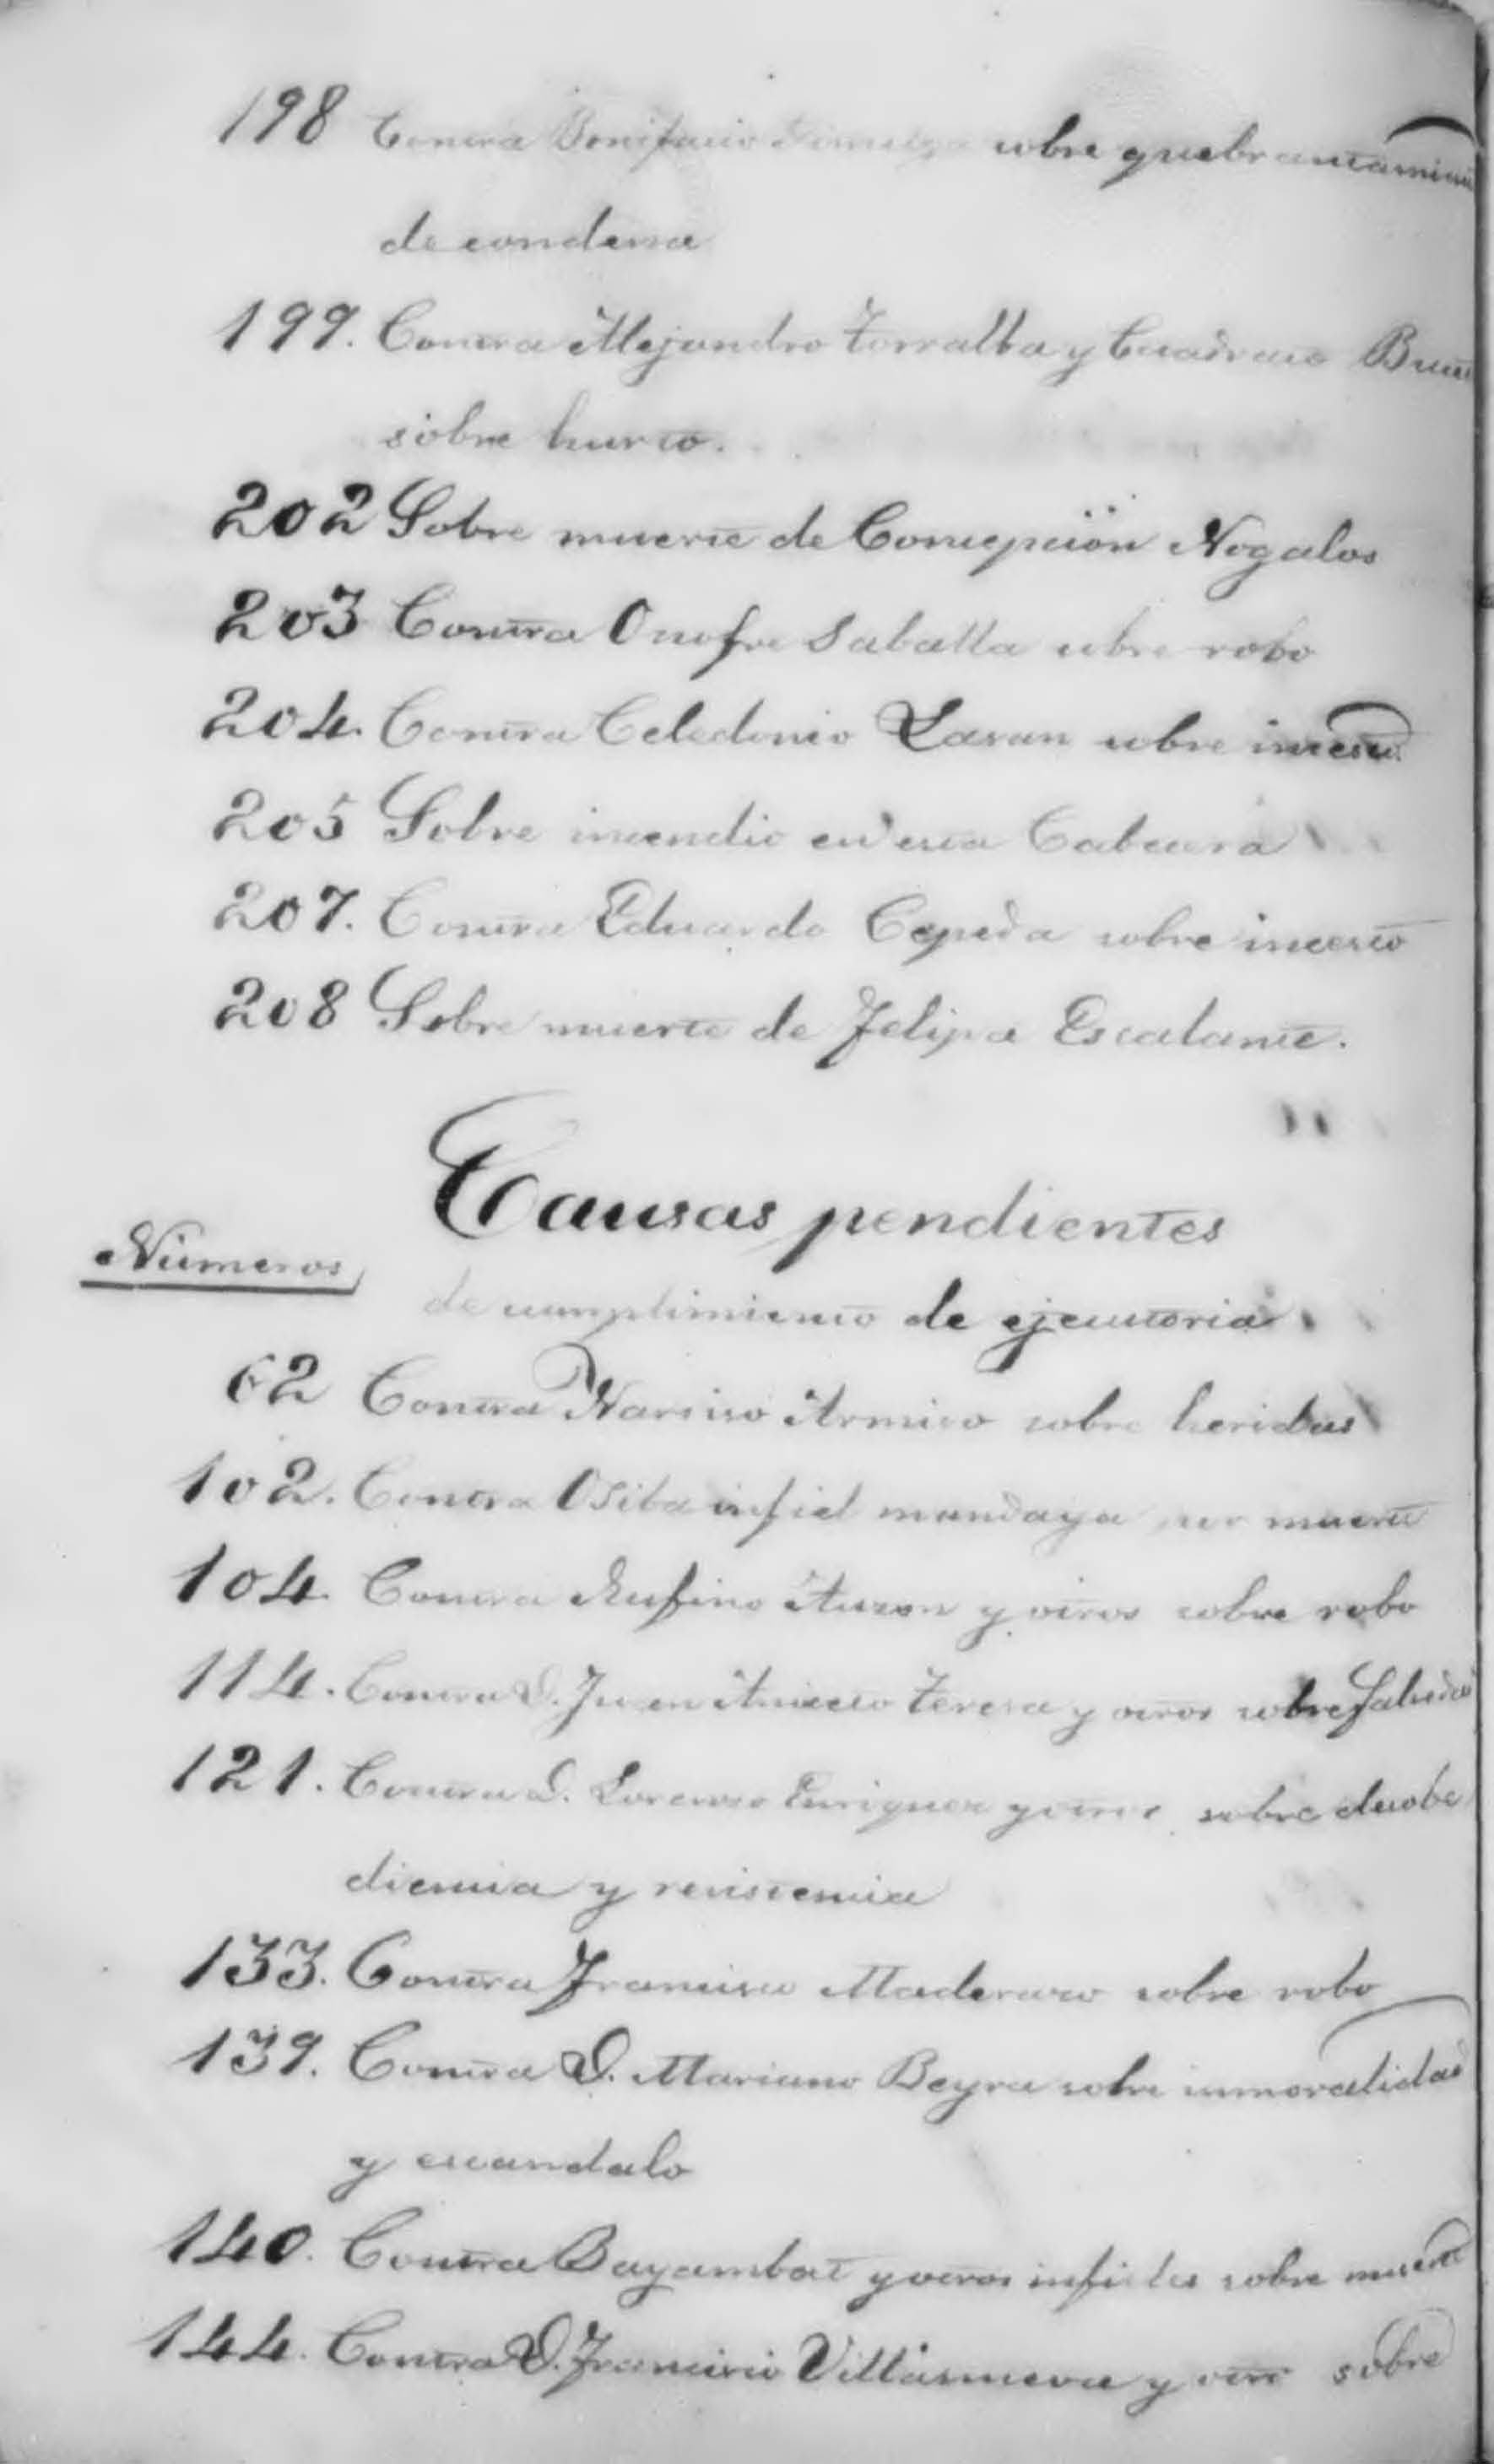 198 Contra Bonifacio sobre quebrantamiento
de condena
199. Contra Alejandro Torralba y Cuadrato
sobre hurto.
202 Sobre muerte de Concepción Nogalos
203 Contra Onofre Saballa sobre robo
204. Contra Celedonio Lasan sobre incesto
205 Sobre incendio en esta Cabecera
207. Contra Eduardo Cepeda sobre incesto
208 Sobre muerte de Felipa Escalante.
Causas pendientes
Números
de cumplimiento de ejecutoria
62 Contra Narciso sobre heridas
102. Contra Osiba infiel mandaya por muerte
104 Contra Rufino Auzon y otros sobre robo
114. Contra D. Juan Aniceto Teresa y otros sobre falsedad
121. Contra D. Lorenzo Enriquez y otros sobre desobe
diencia y resistencia
133. Contra Francisco Maderazo sobre robo
139. Contra D. Mariano Beyra sobre inmoralidad
y escandalo
140. Contra Bayambat y otros infieles sobre muerte
144. Contra D. Francisco Villanueva y otro sobre